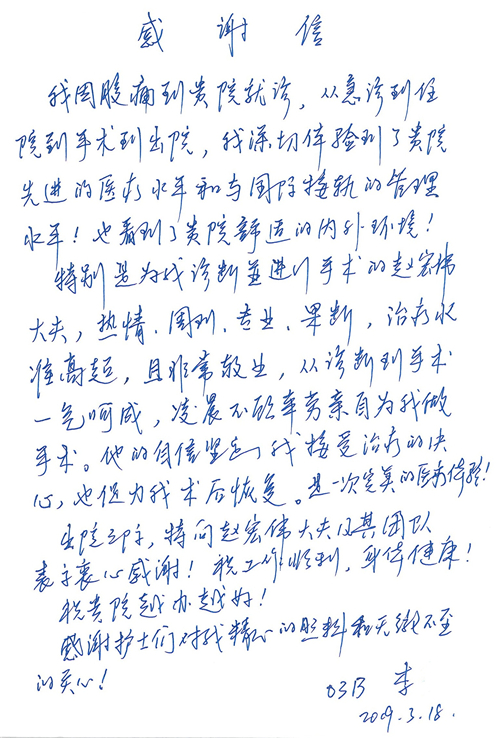 感谢信
我因腹痛到贵院就诊，从急诊到住
院到手术到出院，我深切体验到了贵院
先进的医疗水平和与国际接轨的管理
水平！也看到了贵院舒适的内外环境！
特别是为我诊断并进行手术的赵宏伟
大夫，热情、周到、专业、果断，治疗水
准高超，且非常敬业，从诊断到手术
一气呵成，凌晨不顾辛劳亲自为我做
手术。他的自信坚定了我接受治疗的决
心，也促为我术后恢复。是一次完美的医疗体验！
出院之际，特向赵宏伟大夫及其团队
表示衷心感谢！祝工作顺利，身体健康！
祝贵院越办越好！
感谢护士们对我精心的照料和无微不至
的关心！
03B 李
2009.3.18.